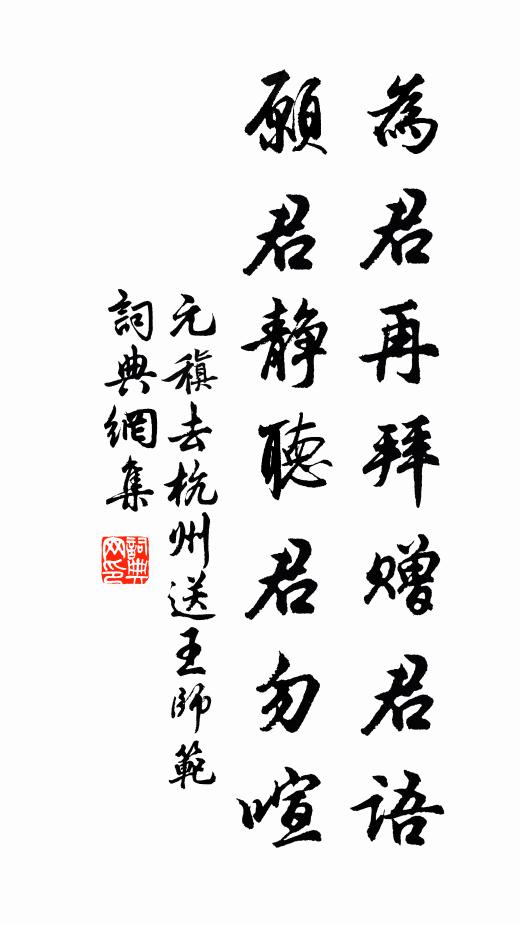 為君再拜贈君語
願君静聽君勿喧
元稹去杭州送王師範
詞典網集
詞典网印